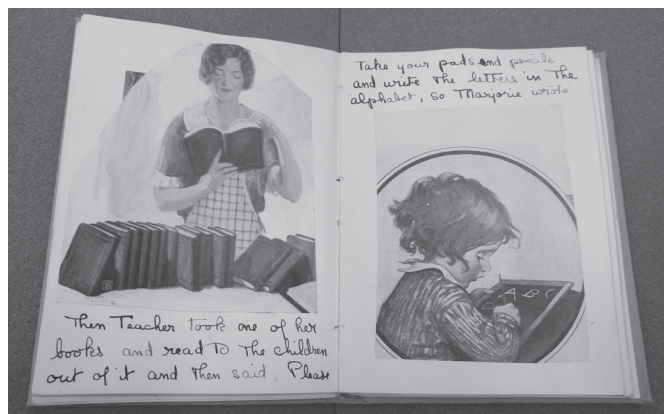 Then Teacher took one of her
books and read to the children
out of it and then said, Please
Take your pads and pencils
and write the letters in the
alphabet, so Marjorie wrote
A B C